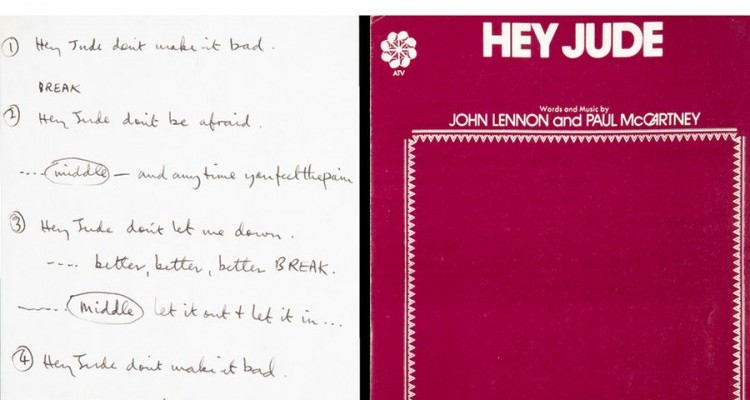 ① Hey Jude don't make it bad.
BREAK
② Hey Jude don't be afraid.
.... middle — and any time you feel the pain
③ Hey Jude don't let me down.
---- better, better, better BREAK.
middle let it out + let it in...
④ Hey Jude don't make it bad.
HEY JUDE
ATV
Words and Music by
JOHN LENNON and PAUL McCARTNEY